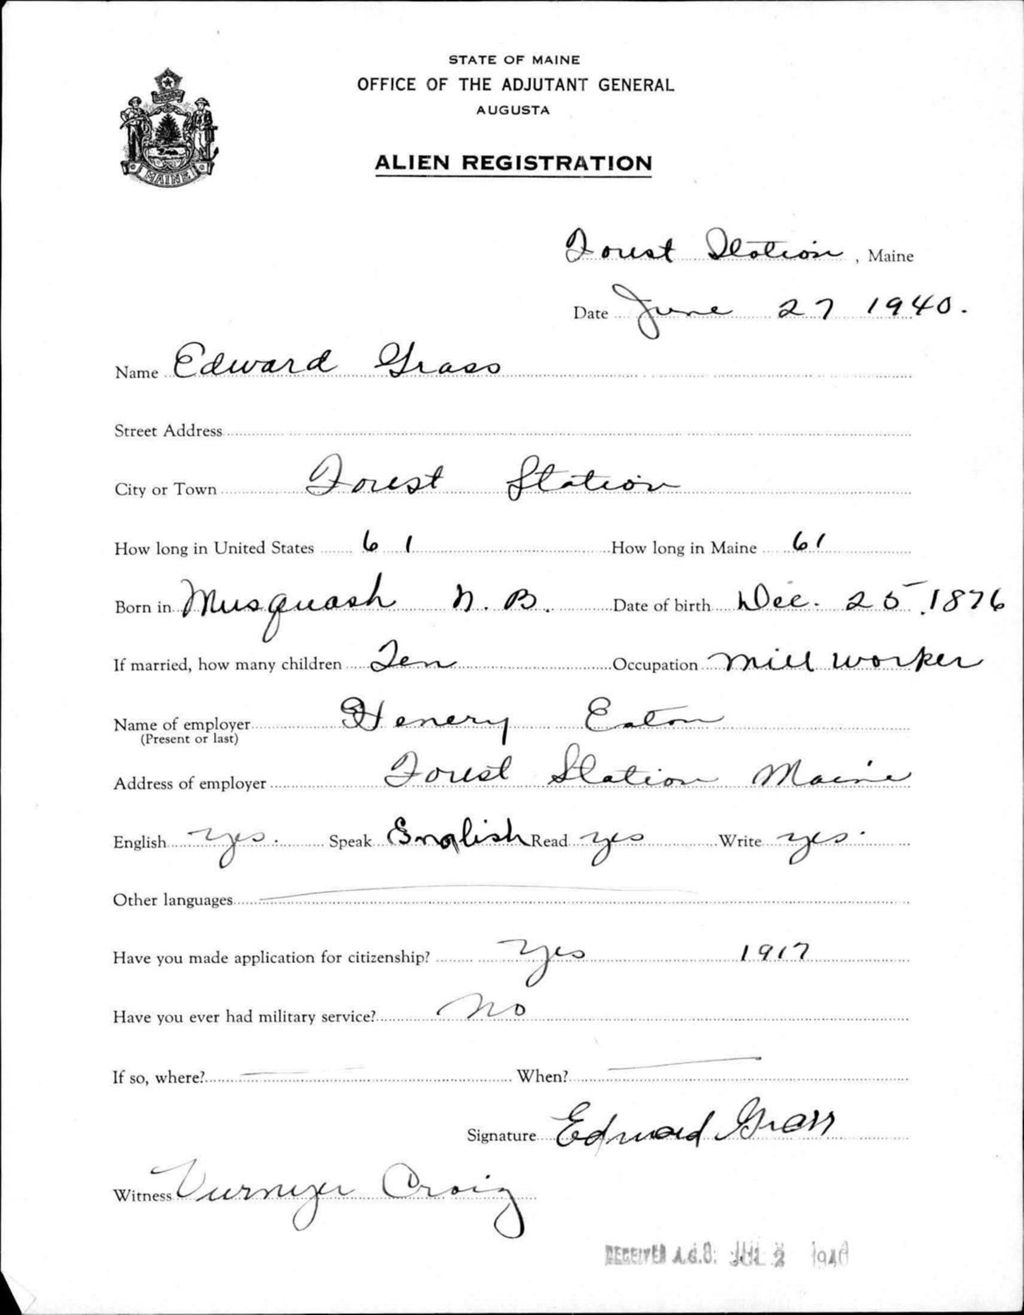 STATE OF MAINE
OFFICE OF THE ADJUTANT GENERAL
AUGUSTA
ALIEN REGISTRATION
MAINE
Forest Station, Maine
Date June 27 1940.
Name Edward Grass
Street Address
City or Town Forest Station
How long in United States 61 How long in Maine 61
Born in Musquash N.B. Date of birth Dec. 25, 1876
If married, how many children Ten Occupation Mill worker
Name of employer Henery Eaton
(Present or last)
Address of employer Forest Station Maine
English yes. Speak English Read yes Write yes.
Other languages
Have you made application for citizenship? Yes 1917
Have you ever had military service? No
If so, where? When?
Signature Edward Grass
Witness Craig
RECEIVED A.G.O. JUL 2 1940